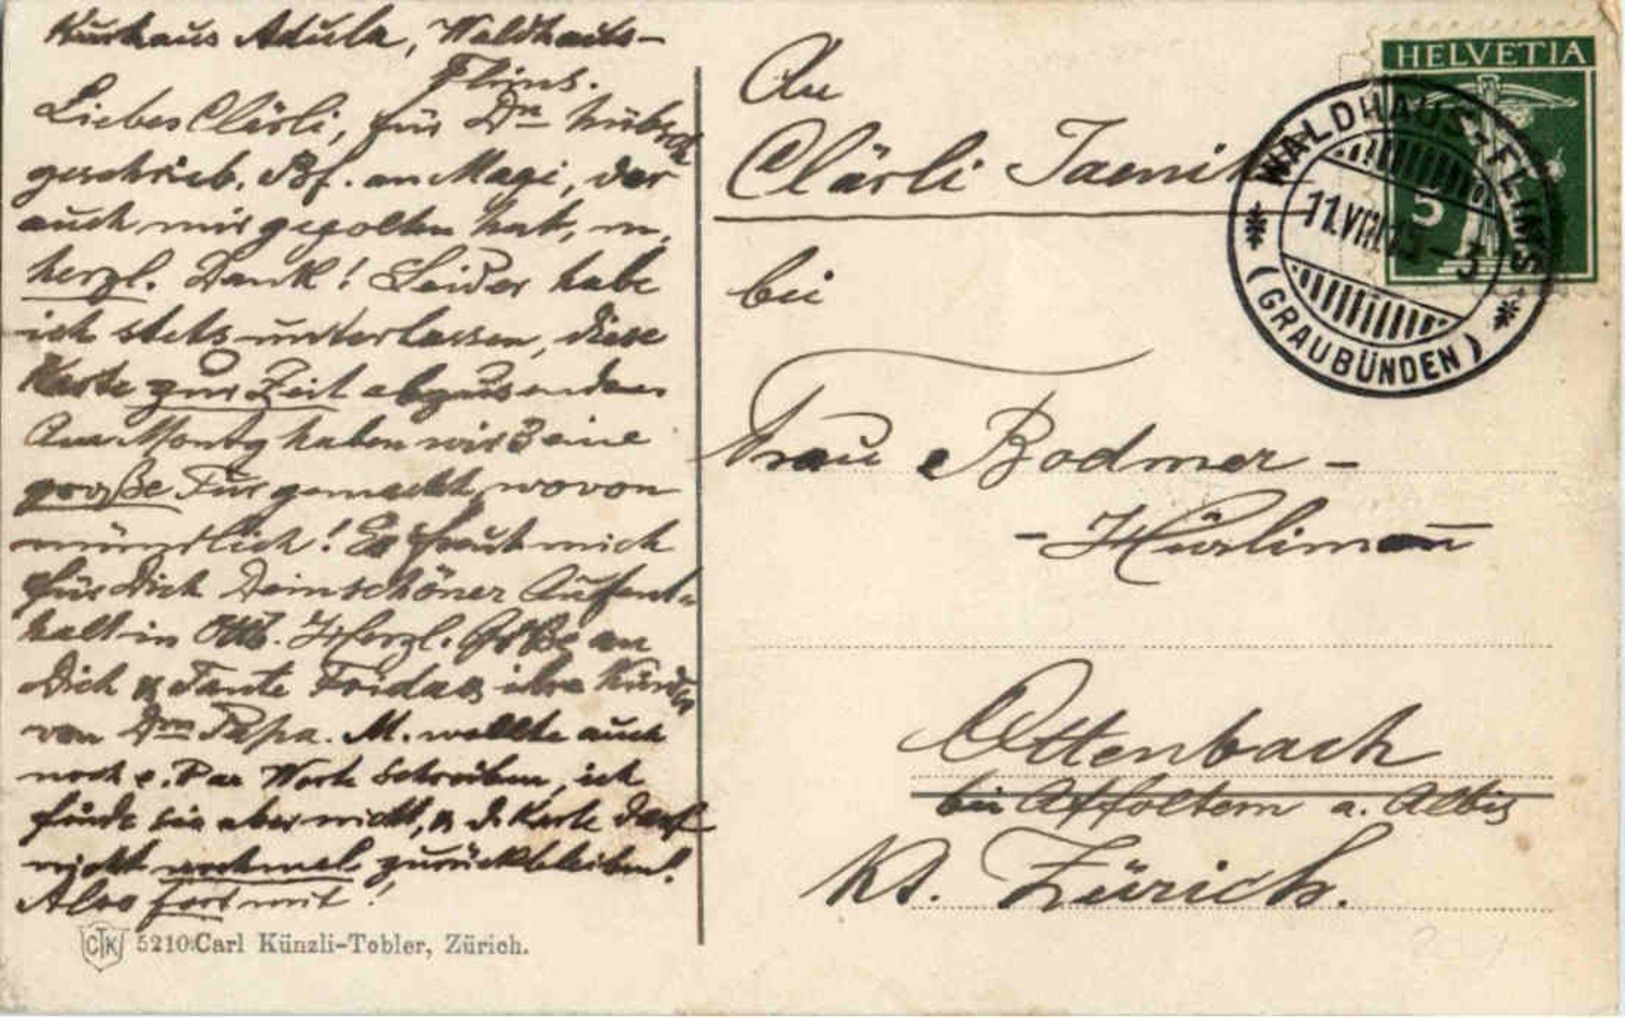 Kurhaus Adula, Waldhaus-
Flims.
Liebes Clärli, für Dn hübsch
geschrieb. Bf. an Magi, der
auch mir gegolten hat, m.
herzl. Dank! Leider habe
ich stets unterlassen, diese
Karte zur Zeit abzusenden
haben wir 3 eine
große Tur gemacht, wovon
mündlich! Es freut mich
für Dich Dein schöner Aufent-
halt in Ottb. Herzl. Grüße an
Dich & Tante Frida & ihre Kinder
von Dm Papa. M. wollte auch
noch e. Par Worte schreiben, ich
finde sie aber nicht, & d. Karte darf
nicht nochmal zurückbleiben!
Also fort mit!
CTK 5210 Carl Künzli-Tobler, Zürich.
An
Clärli
bei
Frau Bodmer-
-Hürlimann
Ottenbach
bei Affoltern a. Albis
Kt. Zürich.
HELVETIA
5
WALDHAUS-FLIMS
11.VIII. -3
(GRAUBÜNDEN)